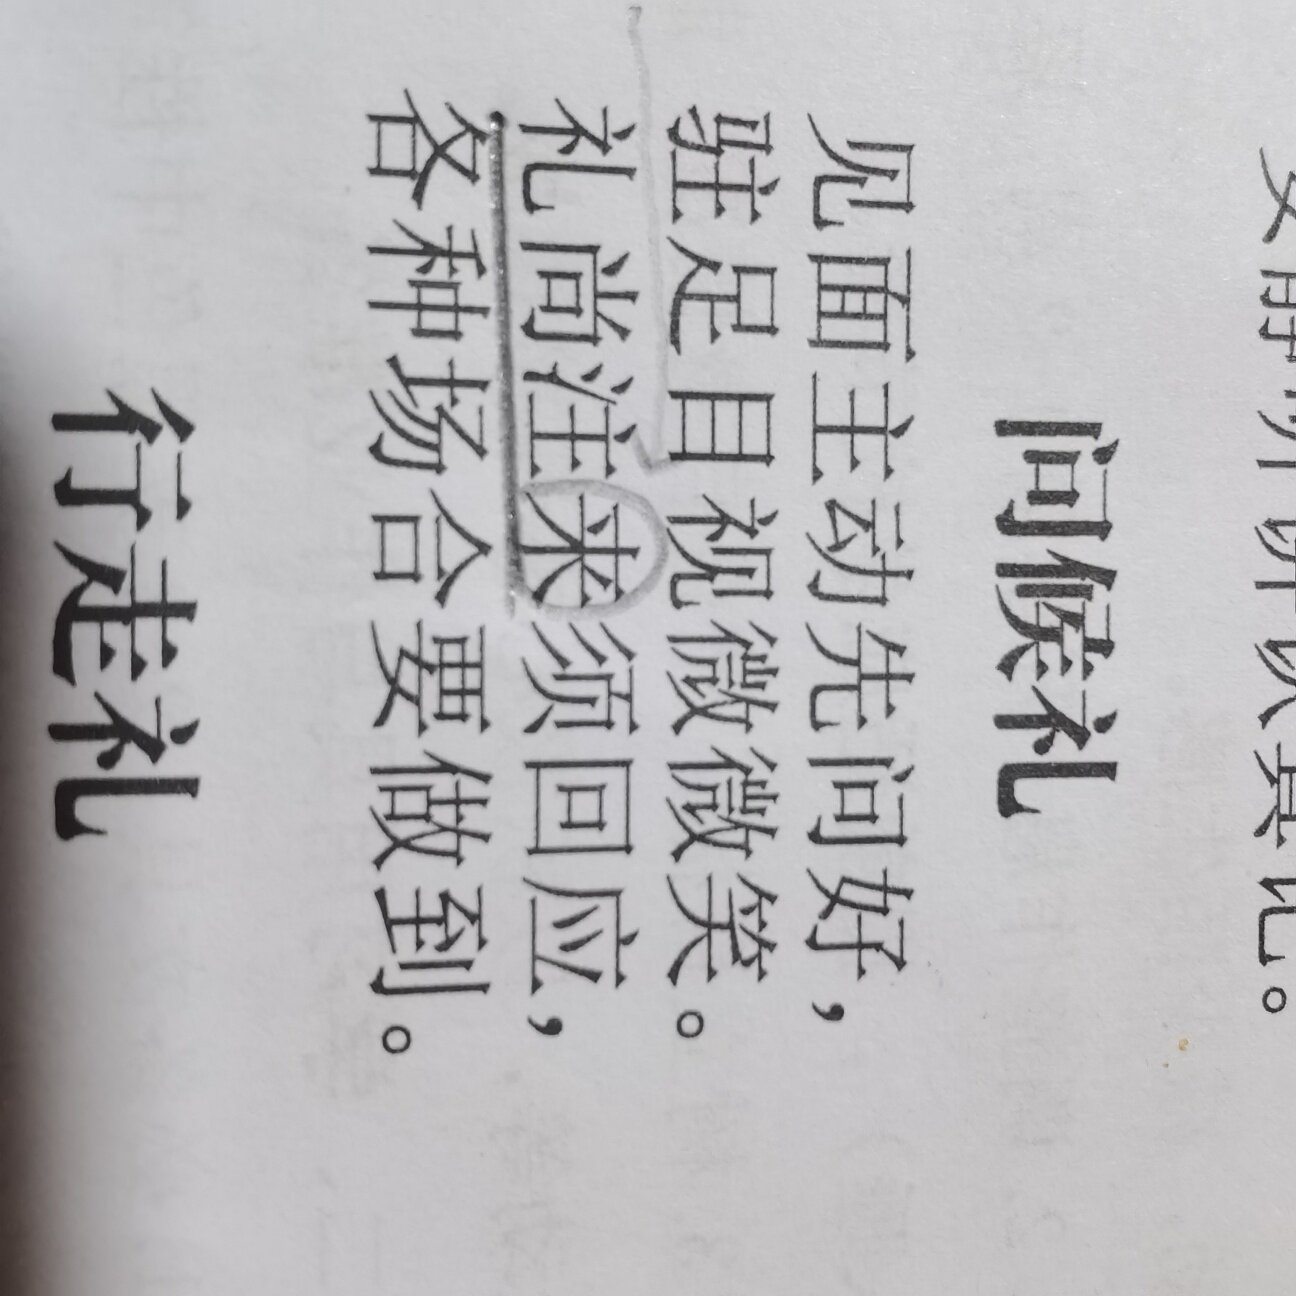 安静听讲认真记。
问候礼
见面主动先问好，
驻足目视微微笑。
礼尚注来须回应，
各种场合要做到。
行走礼